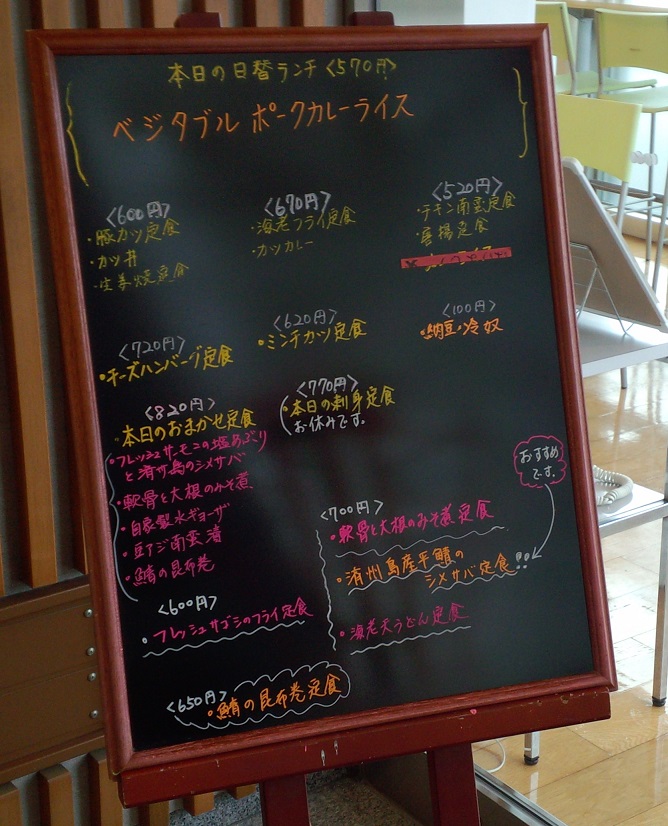 本日の日替ランチ〈570円〉
ベジタブル ポークカレーライス
〈600円〉
・豚カツ定食
・カツ丼
・生姜焼定食
〈670円〉
・海老フライ定食
・カツカレー
〈520円〉
・チキン南蛮定食
・唐揚定食
〈720円〉
・チーズハンバーグ定食
〈620円〉
・ミンチカツ定食
〈100円〉
・納豆・冷奴
〈820円〉
・本日のおまかせ定食
・フレッシュサーモンの塩あぶり
と済州島のシメサバ
・軟骨と大根のみそ煮
・自家製水ギョーザ
・豆アジ南蛮漬
・鯖の昆布巻
〈770円〉
・本日の刺身定食
お休みです。
おすすめ
です。
〈700円〉
・軟骨と大根のみそ煮定食
・済州島産平鯖の
シメサバ定食!!
・海老天うどん定食
〈600円〉
・フレッシュサゴシのフライ定食
〈650円〉
・鯖の昆布巻定食